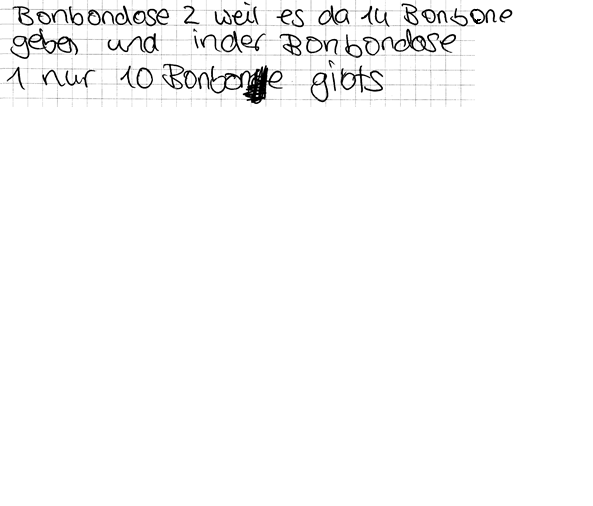 Bonbondose 2 weil es da 14 Bonbone
geben und inder Bonbondose
1 nur 10 Bonbone gibts